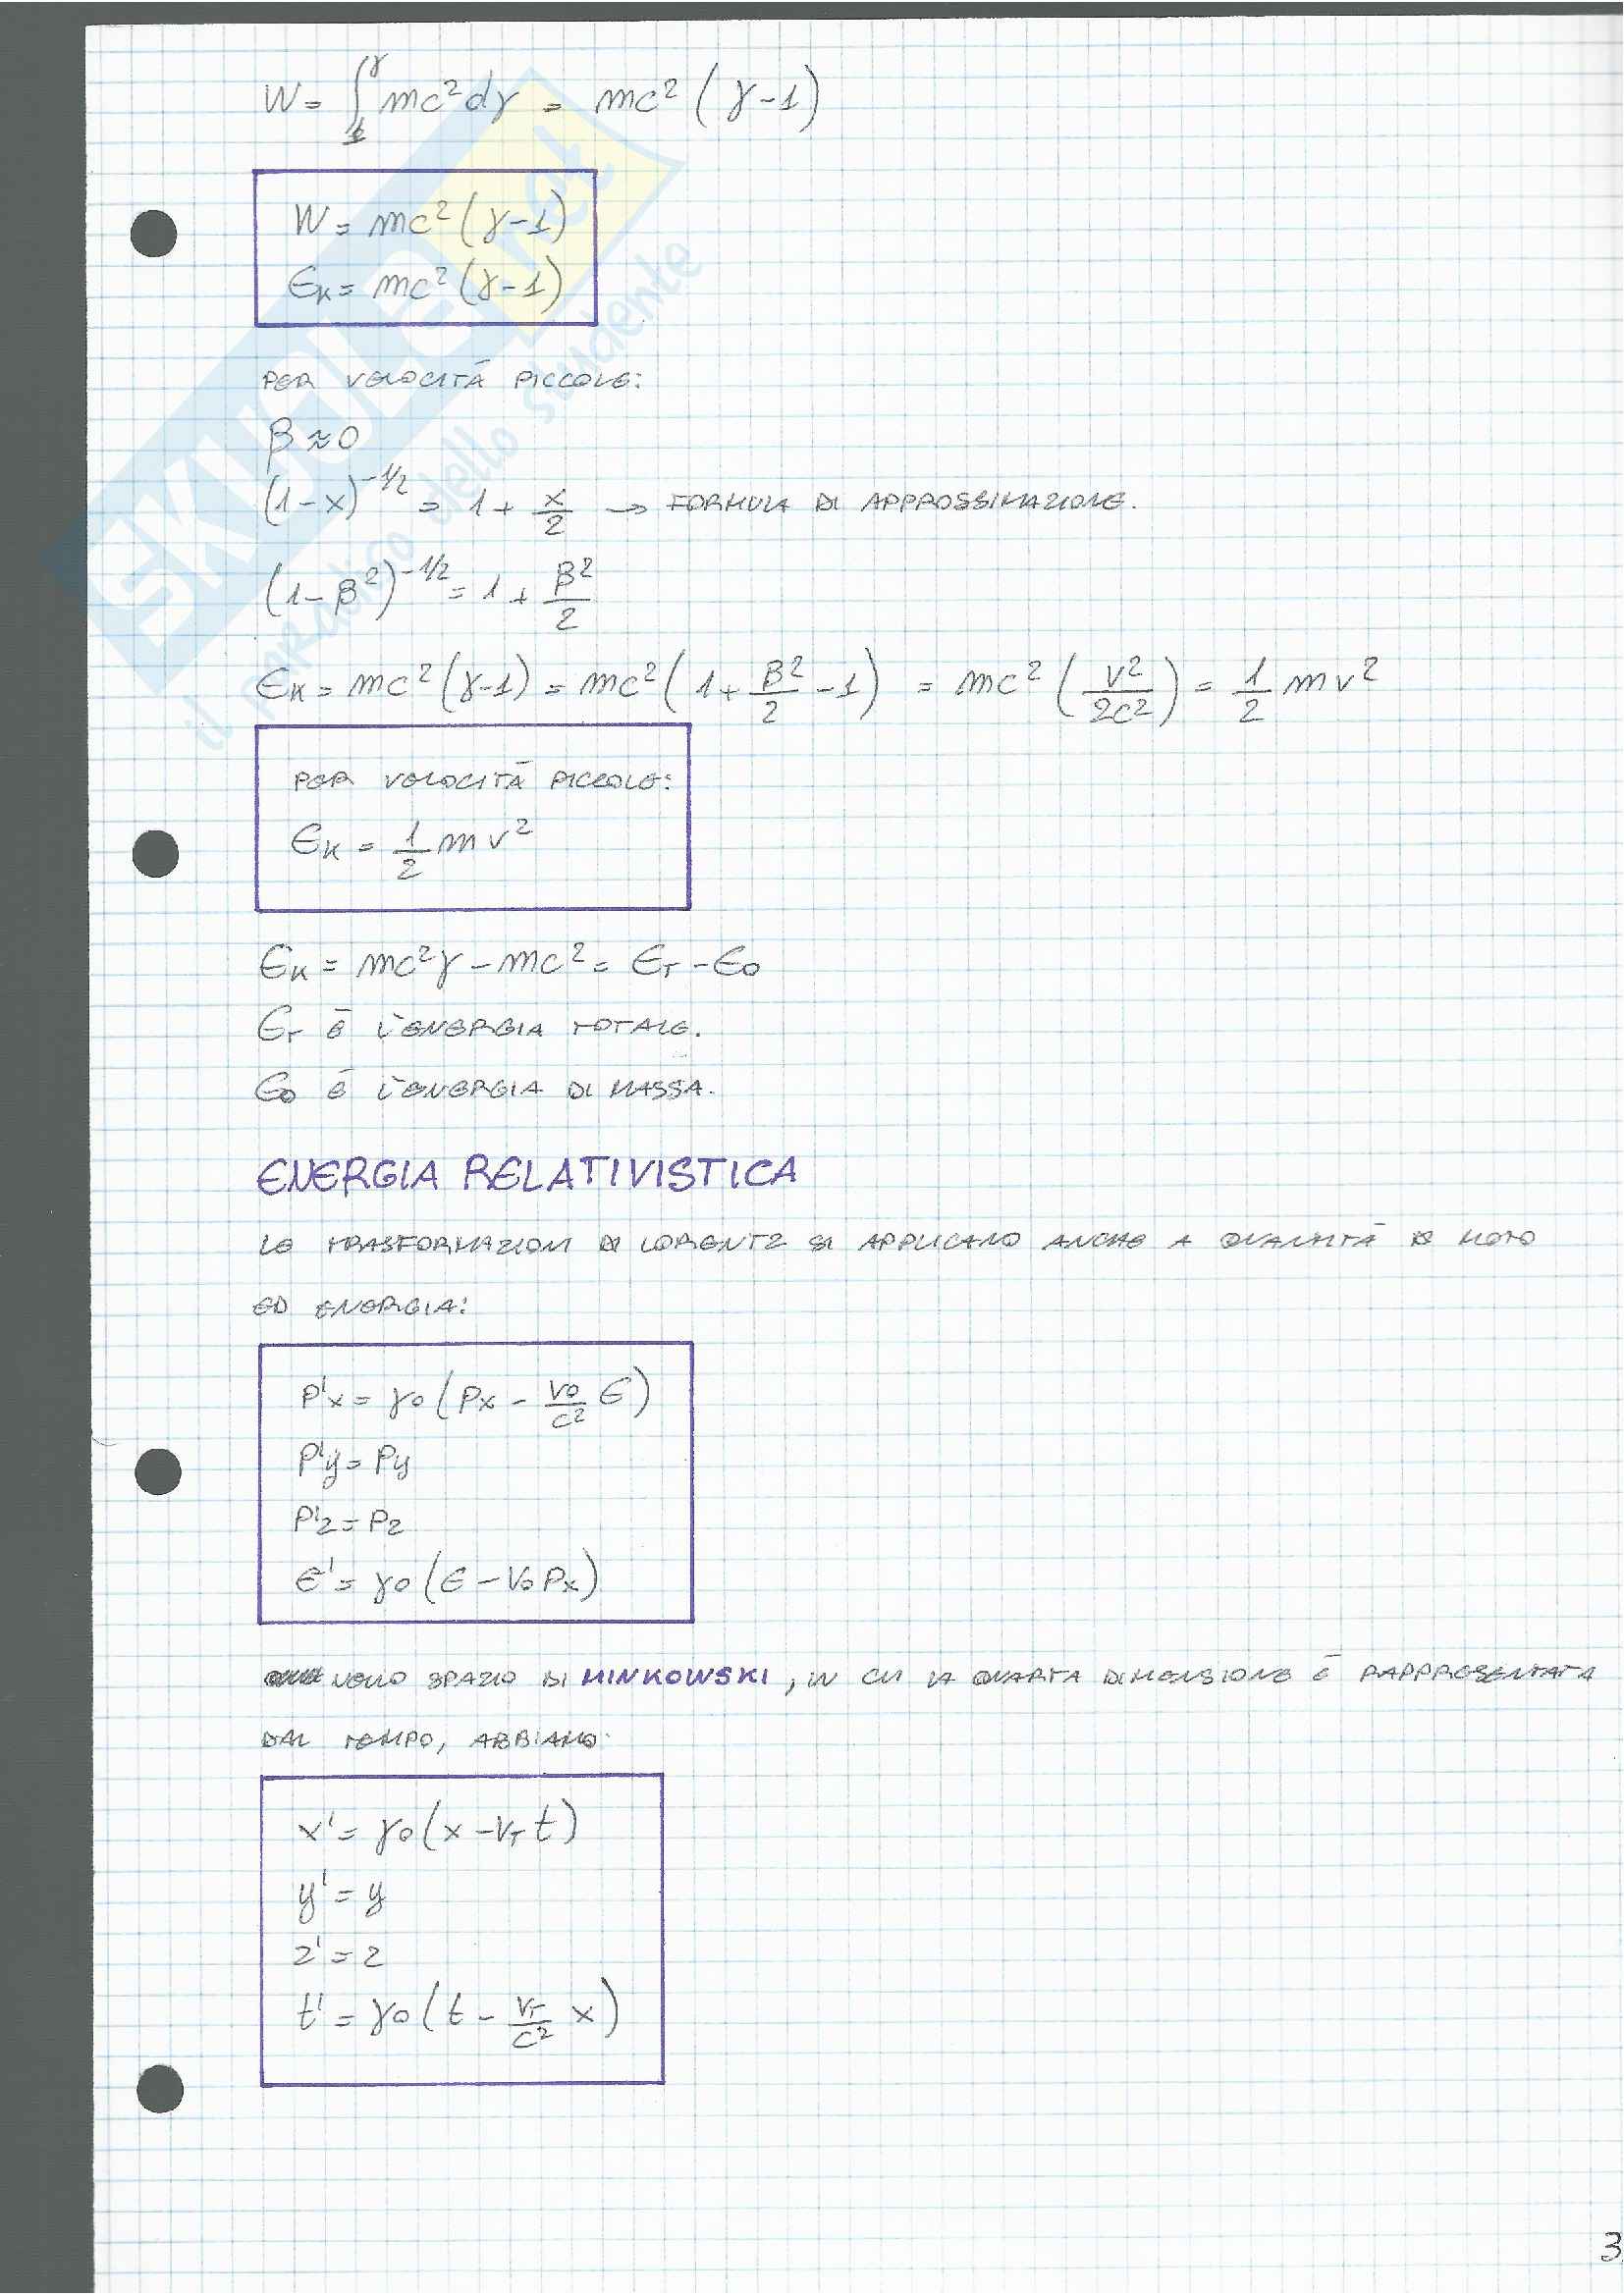 W = ∫₁^γ mc² dγ = mc² (γ-1)
W = mc² (γ-1)
Eκ = mc² (γ-1)
PER VELOCITÀ PICCOLE:
β ≈ 0
(1-x)^-1/2 = 1 + x/2 → FORMULA DI APPROSSIMAZIONE.
(1-β²)^-1/2 = 1 + β²/2
Eκ = mc² (γ-1) = mc² (1 + β²/2 - 1) = mc² (v²/2c²) = 1/2 mv²
PER VELOCITÀ PICCOLE:
Eκ = 1/2 mv²
Eκ = mc²γ - mc² = Eт - E₀
Eт È L'ENERGIA TOTALE.
E₀ È L'ENERGIA DI MASSA.
ENERGIA RELATIVISTICA
LE TRASFORMAZIONI DI LORENTZ SI APPLICANO ANCHE A QUANTITÀ DI MOTO
ED ENERGIA:
P'x = γ₀ (Px - V₀/c² E)
P'y = Py
P'z = Pz
E' = γ₀ (E - V₀ Px)
NELLO SPAZIO DI MINKOWSKI, IN CUI LA QUARTA DIMENSIONE È RAPPRESENTATA
DAL TEMPO, ABBIAMO:
x' = γ₀ (x - Vт t)
y' = y
z' = z
t' = γ₀ (t - Vт/c² x)
3
SKUOLA.net
il paradiso dello studente